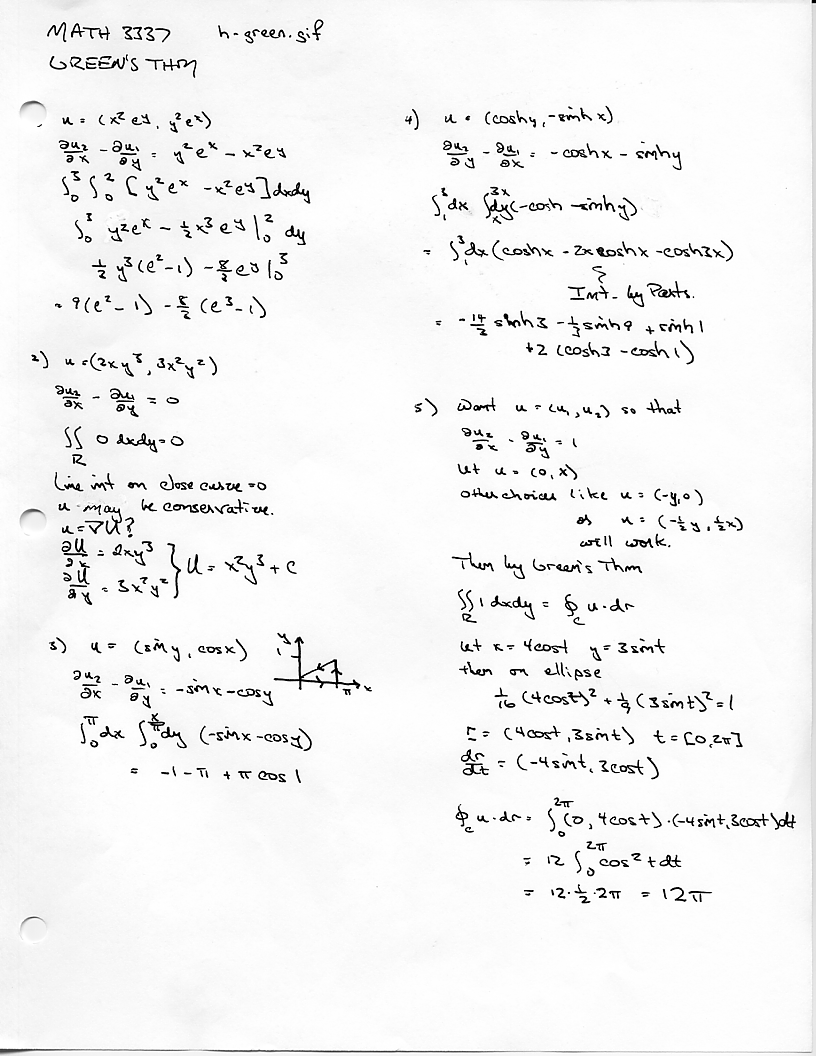 MATH 3337 h-green.gif
GREEN'S THM
u = (x² e^y, y² e^x)
∂u₂/∂x - ∂u₁/∂y = y² e^x - x² e^y
∫₀³ ∫₀² [y² e^x - x² e^y] dxdy
∫₀³ y² e^x - ½ x³ e^y |₀² dy
½ y³ (e² - 1) - 8/2 e^y |₀³
= 9(e² - 1) - 8/2 (e³ - 1)
2) u = (2xy³, 3x²y²)
∂u₂/∂x - ∂u₁/∂y = 0
∬_R 0 dxdy = 0
Line int on close curve = 0
u may be conservative.
u = ∇U?
∂U/∂x = 2xy³
∂U/∂y = 3x²y² } U = x²y³ + C
3) u = (sin y, cos x)
y
1
π x
∂u₂/∂x - ∂u₁/∂y = -sin x - cos y
∫₀^π dx ∫₀ dy (-sin x - cos y)
= -1 - π + π cos 1
4) u = (cosh y, -sinh x)
∂u₂/∂y - ∂u₁/∂x = -cosh x - sinh y
∫₁³ dx ∫ₓ^3x dy (-cosh - sinh y)
= ∫₁³ dx (cosh x - 2x cosh x - cosh 3x)
Int. by Parts.
= -14/2 sinh 3 - ⅓ sinh 9 + sinh 1
+2 (cosh 3 - cosh 1)
5) Want u = (u₁, u₂) so that
∂u₂/∂x - ∂u₁/∂y = 1
Let u = (0, x)
other choices like u = (-y, 0)
or u = (-½ y, ½ x)
will work.
Then by Green's Thm
∬_R 1 dxdy = ∮_C u · dr
Let x = 4cos t y = 3 sin t
then on ellipse
1/16 (4cos t)² + 1/9 (3 sin t)² = 1
r = (4cos t, 3 sin t) t = [0, 2π]
dr/dt = (-4 sin t, 3 cos t)
∮_C u · dr = ∫₀^2π (0, 4cos t) · (-4 sin t, 3 cos t) dt
= 12 ∫₀^2π cos² t dt
= 12 · ½ · 2π = 12π